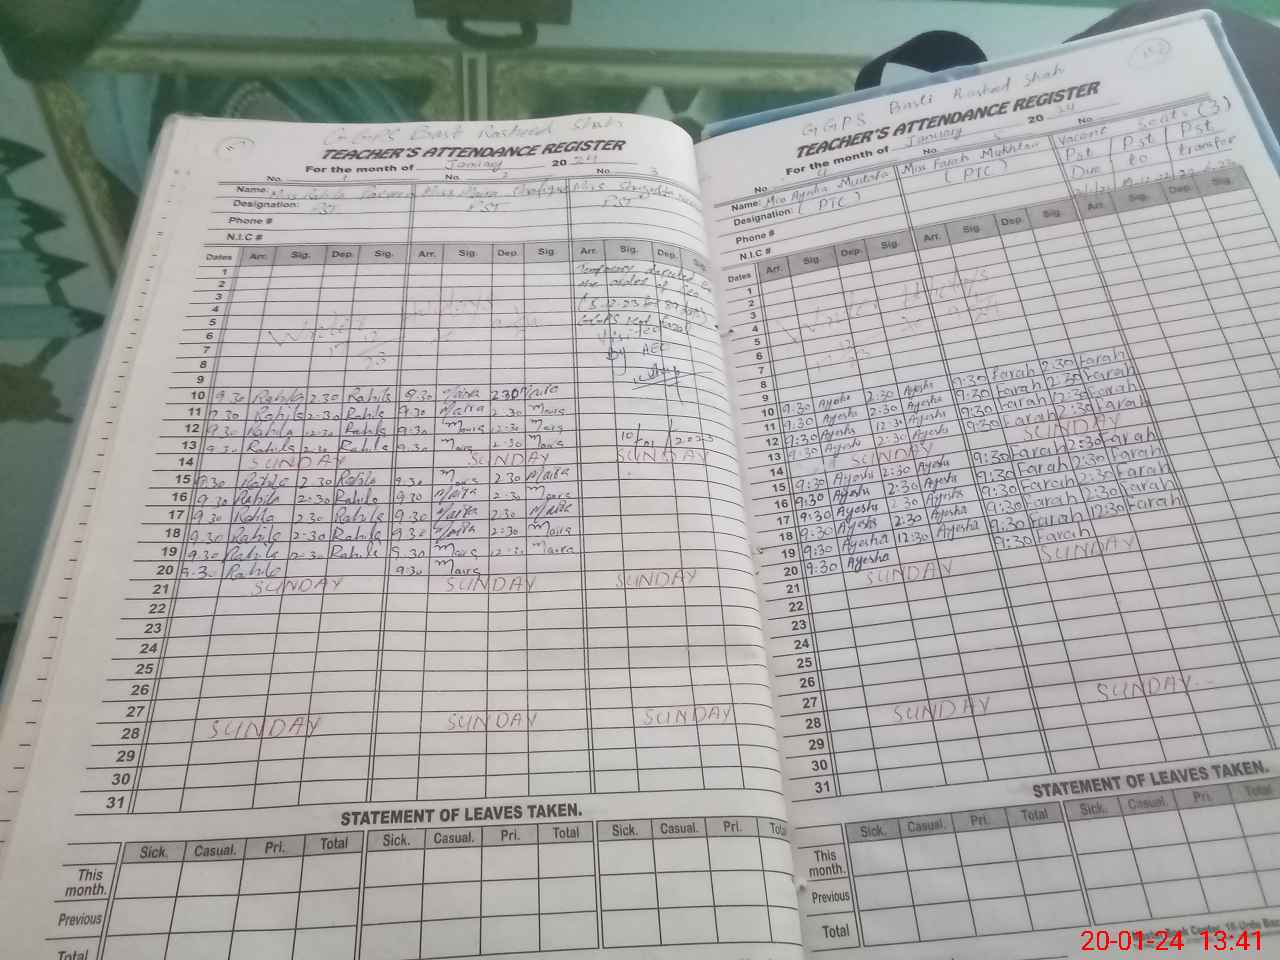 GGPS Basti Rasheed Shah
TEACHER'S ATTENDANCE REGISTER
For the month of January 2024
No. 1 No. 2 No. 3
Name: Miss Rahila Miss Maira Miss
Designation: PST PST PST
Phone #
N.I.C #
Dates Arr. Sig. Dep. Sig. Arr. Sig. Dep. Sig. Arr. Sig. Dep. Sig.
1
2
3
4
5
6
7
8
9
Winter Holidays
By AEO
10 9:30 Rahila 2:30 Rahila 9:30 Maira 2:30 Maira
11 9:30 Rahila 2:30 Rahila 9:30 Maira 2:30 Maira
12 9:30 Rahila 12:30 Rahila 9:30 Maira 12:30 Maira
13 9:30 Rahila 2:30 Rahila 9:30 Maira 2:30 Maira
14 SUNDAY SUNDAY SUNDAY
15 9:30 Rahila 2:30 Rahila 9:30 Maira 2:30 Maira
16 9:30 Rahila 2:30 Rahila 9:30 Maira 2:30 Maira
17 9:30 Rahila 2:30 Rahila 9:30 Maira 2:30 Maira
18 9:30 Rahila 2:30 Rahila 9:30 Maira 2:30 Maira
19 9:30 Rahila 12:30 Rahila 9:30 Maira 12:30 Maira
20 9:30 Rahila 9:30 Maira
21 SUNDAY SUNDAY SUNDAY
22
23
24
25
26
27
28 SUNDAY SUNDAY SUNDAY
29
30
31
STATEMENT OF LEAVES TAKEN.
Sick. Casual. Pri. Total Sick. Casual. Pri. Total Sick. Casual. Pri. Total
This month.
Previous
Total
GGPS Basti Rasheed Shah
TEACHER'S ATTENDANCE REGISTER
For the month of January 2024
No. 4 No. 5 No.
Name: Miss Ayesha Mustafa Miss Farah Mukhtar Vacant Seats (3)
Designation: (PTC) (PTC) Pst Pst
Due to transfer
Phone #
N.I.C #
Dates Arr. Sig. Dep. Sig. Arr. Sig. Dep. Sig. Arr. Sig. Dep. Sig.
1
2
3
4
5
6
7
8
9
Winter Holidays
10 9:30 Ayesha 2:30 Ayesha 9:30 Farah 2:30 Farah
11 9:30 Ayesha 2:30 Ayesha 9:30 Farah 2:30 Farah
12 9:30 Ayesha 12:30 Ayesha 9:30 Farah 12:30 Farah
13 9:30 Ayesha 2:30 Ayesha 9:30 Farah 2:30 Farah
14 SUNDAY SUNDAY
15 9:30 Ayesha 2:30 Ayesha 9:30 Farah 2:30 Farah
16 9:30 Ayesha 2:30 Ayesha 9:30 Farah 2:30 Farah
17 9:30 Ayesha 2:30 Ayesha 9:30 Farah 2:30 Farah
18 9:30 Ayesha 2:30 Ayesha 9:30 Farah 2:30 Farah
19 9:30 Ayesha 12:30 Ayesha 9:30 Farah 12:30 Farah
20 9:30 Ayesha 9:30 Farah
21 SUNDAY SUNDAY
22
23
24
25
26
27
28 SUNDAY SUNDAY
29
30
31
STATEMENT OF LEAVES TAKEN.
Sick. Casual. Pri. Total Sick. Casual. Pri. Total
This month.
Previous
Total
20-01-24 13:41